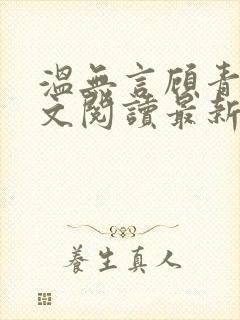 溫無言顧青
文閱讀最新
養生真人